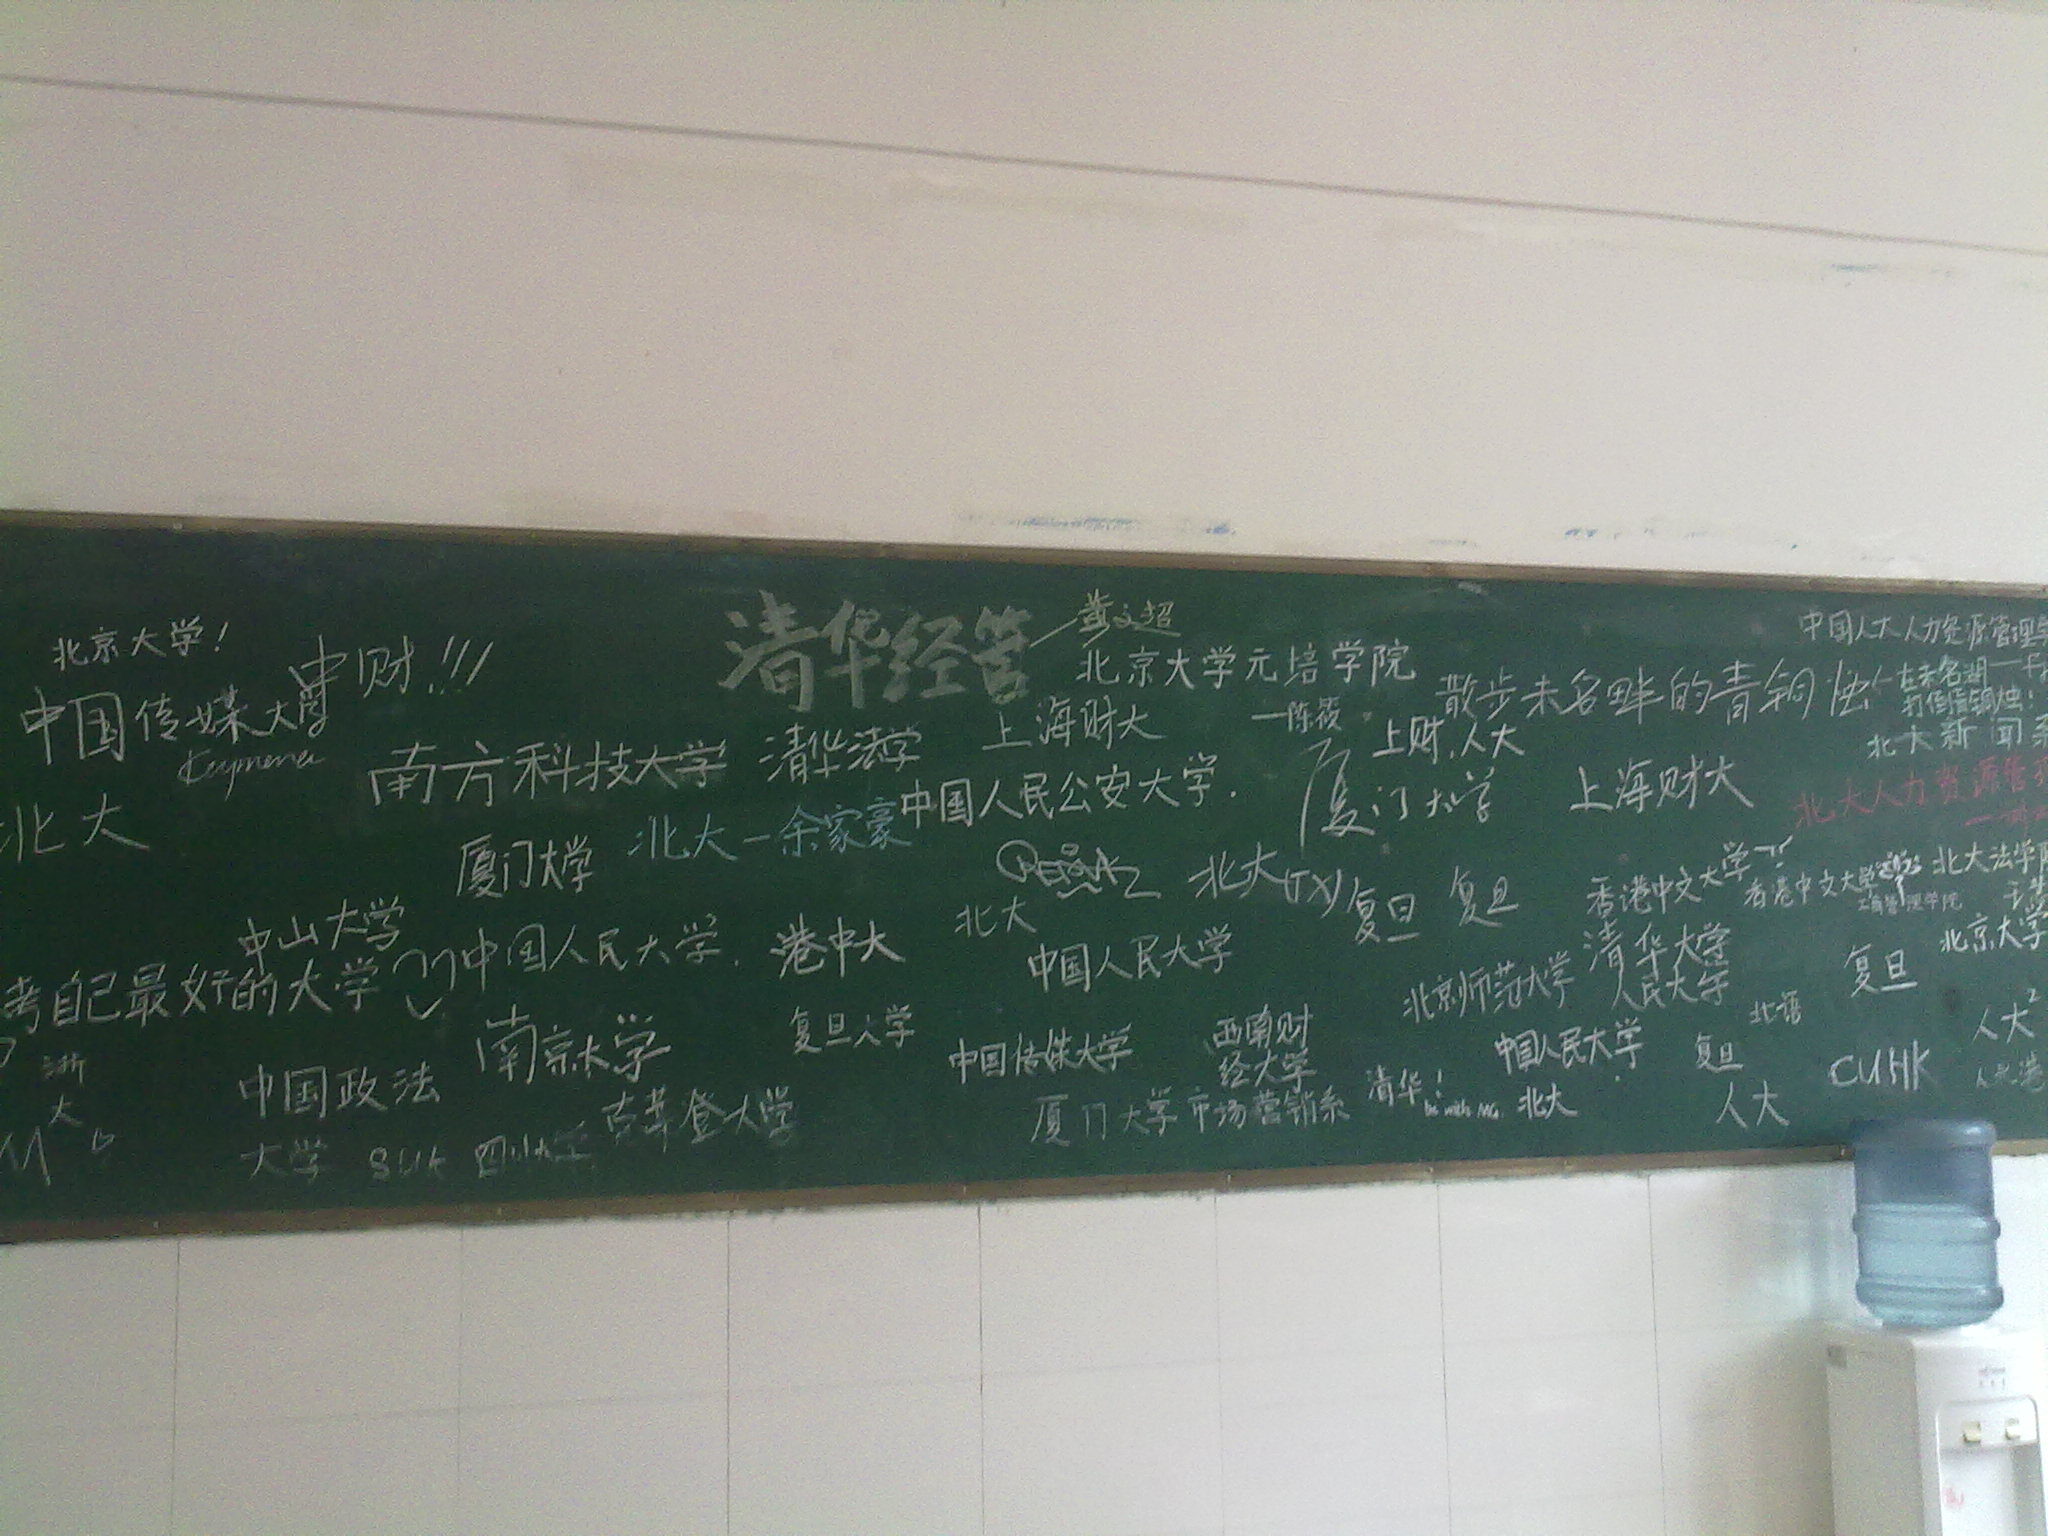 北京大学！
中财!!!
中国传媒大学
北大
南方科技大学
厦门大学
中山大学
考自己最好的大学
中国人民大学.
浙
大
中国政法
大学
南京大学
克莱登大学
清华经管
黄文超
北京大学元培学院
—陈筱
清华法学
上海财大
北大—余家豪
中国人民公安大学.
北大
港中大
中国人民大学
复旦大学
中国传媒大学
西南财
经大学
厦门大学市场营销系
上财.人大
厦门大学
北大(TX)
复旦
复旦
散步未名畔的青铜烛
上海财大
香港中文大学
香港中文大学
工商管理学院
清华大学
人民大学
北京师范大学
中国人民大学
清华！
北大
北语
复旦
人大
复旦
CUHK
中国人大人力资源管理
在未名湖一
打倒青铜烛！
北大新闻系
北大人力资源管理
北大法学院
北京大学
人大²